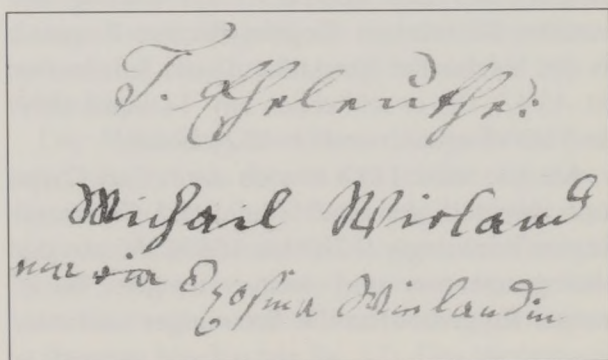 T. Eheleuthe:
Michael Wieland
maria Rosina Wielandin